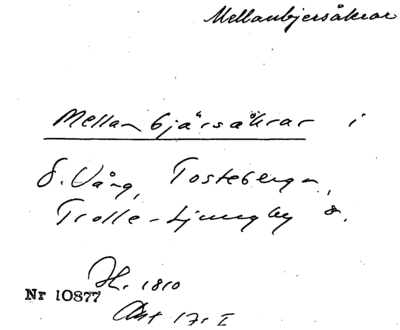 Mellanbjersåkrar
Mellanbjärsåkrar i
S. Vång, Tosteberga,
Trolle-Ljungby s.
Nr 10877
Akt 17. I